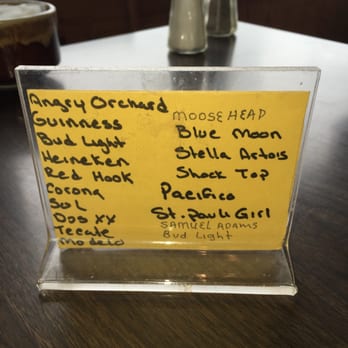 Angry Orchard
Guinness
Bud Light
Heineken
Red Hook
Corona
Sol
Dos XX
Tecate
Modelo
MOOSEHEAD
Blue Moon
Stella Artois
Shock Top
Pacifico
St. Pauli Girl
SAMUEL ADAMS
Bud Light